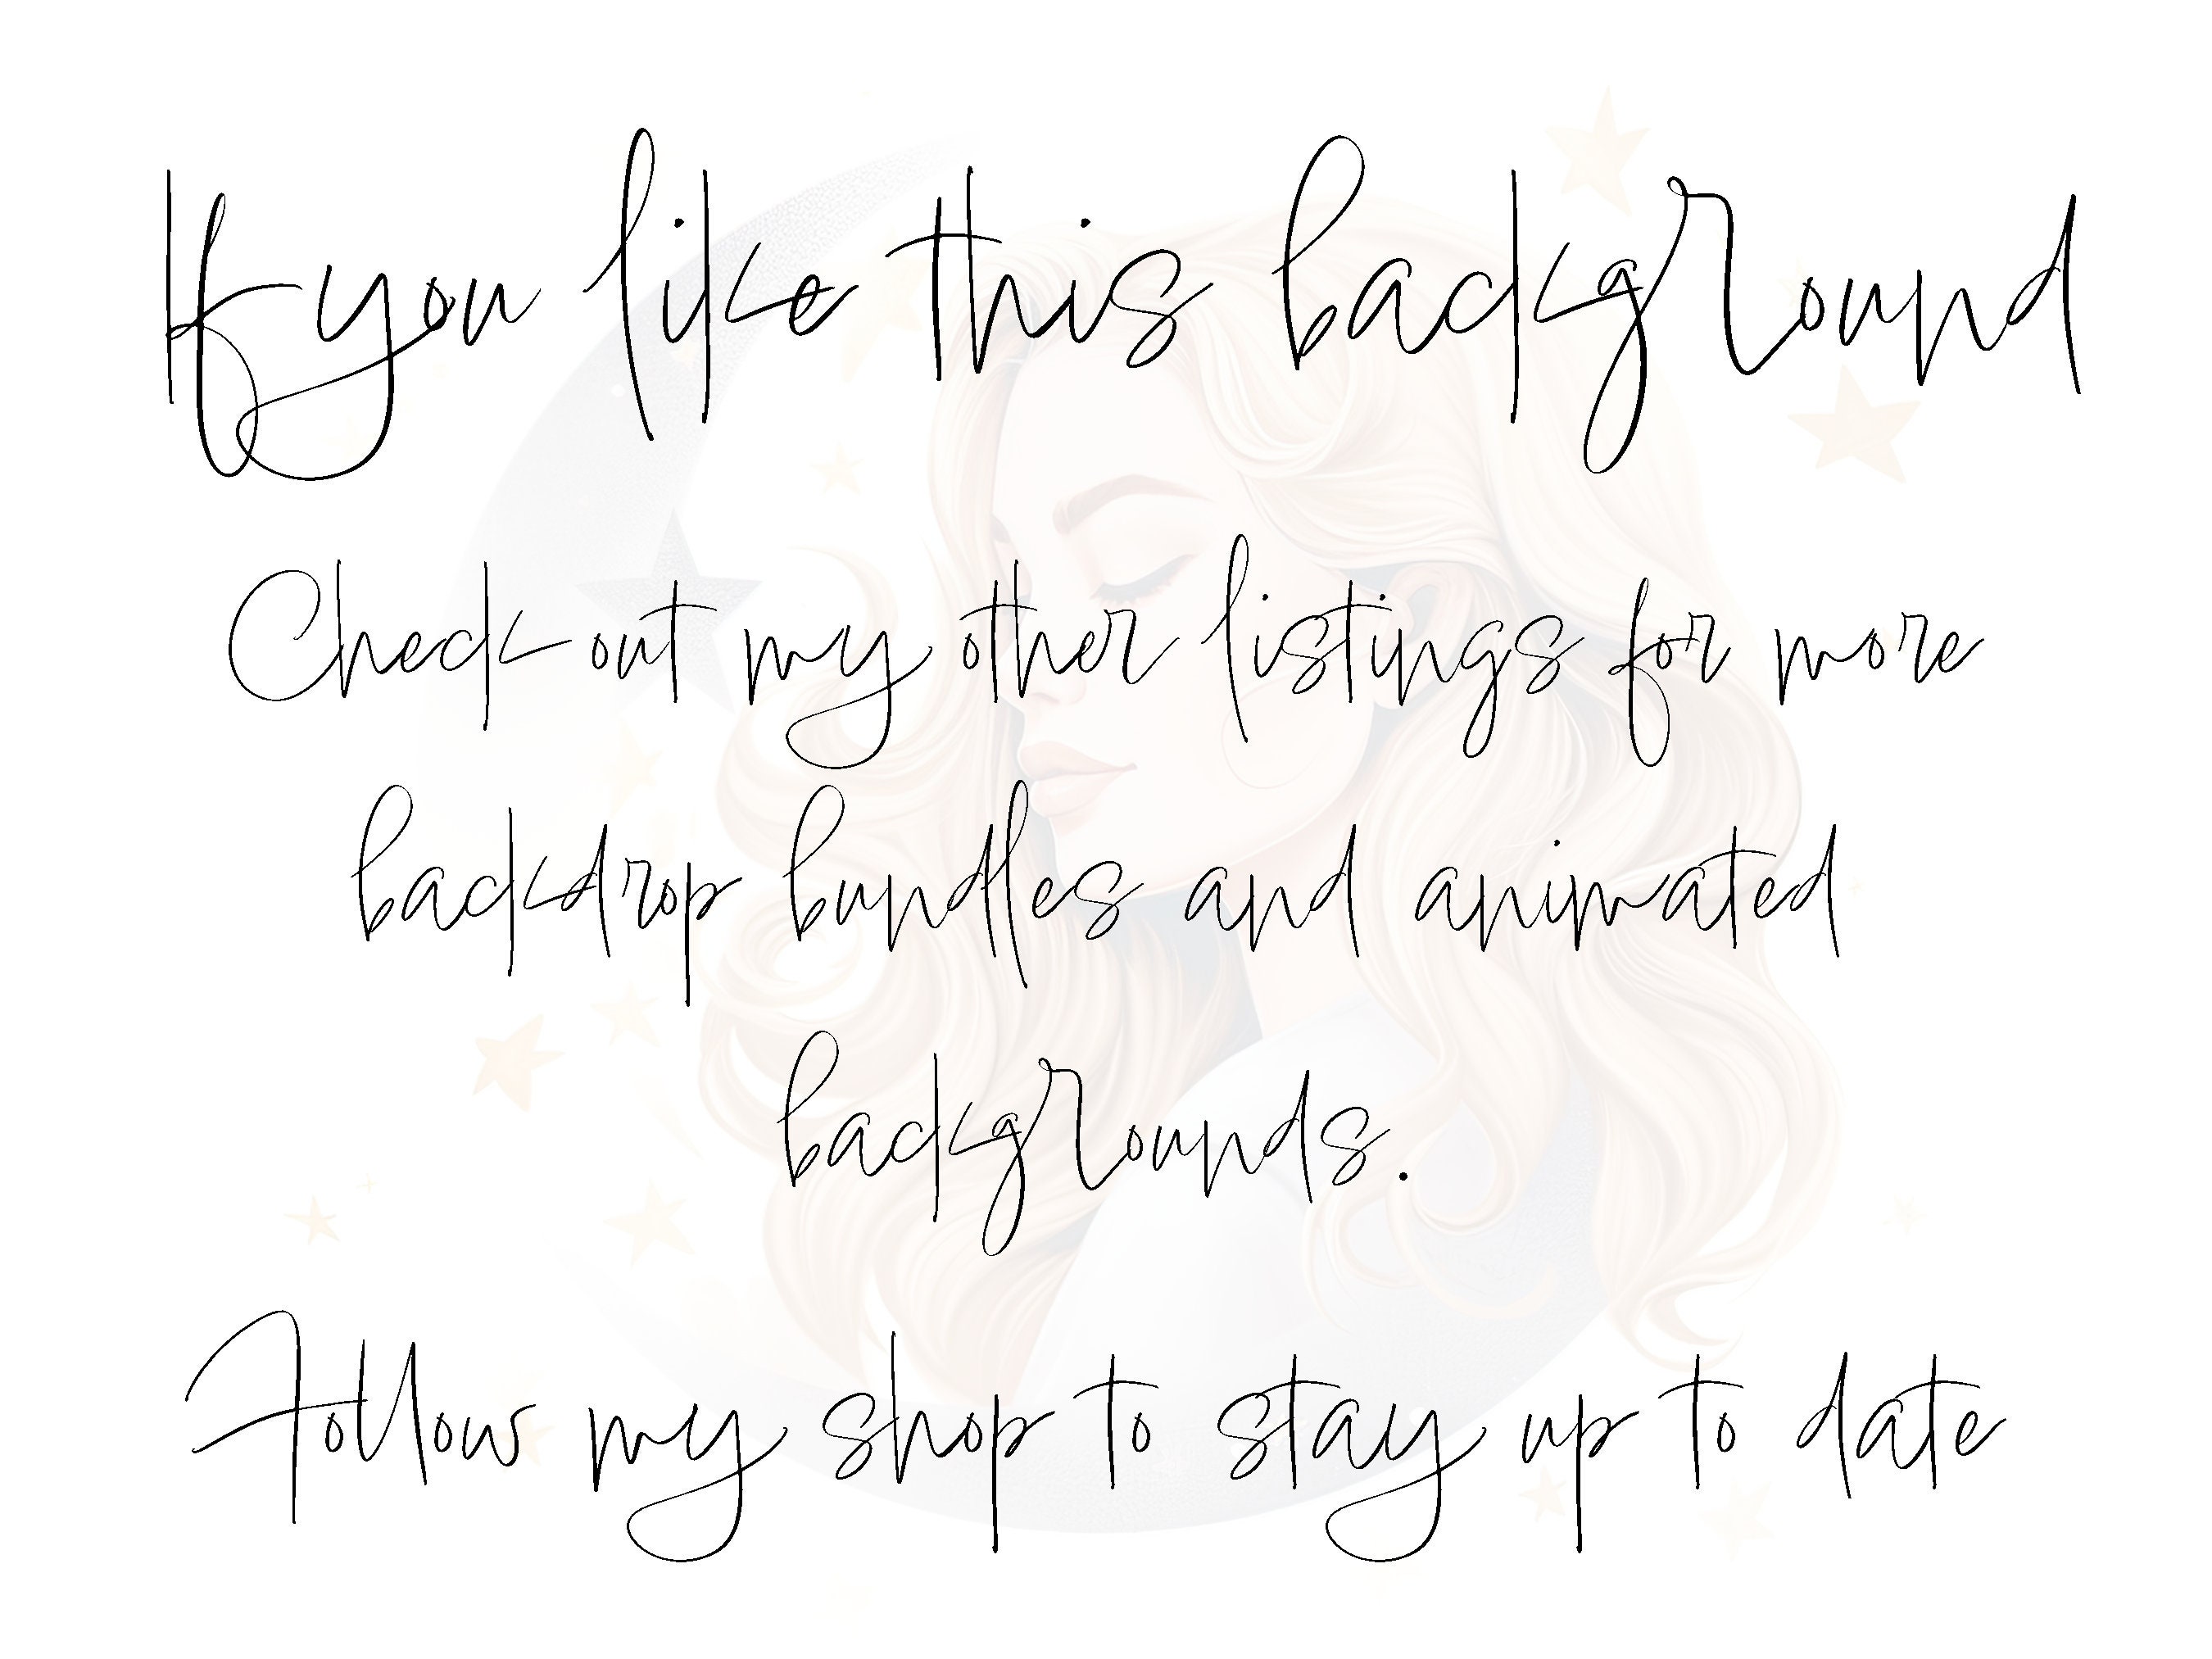 If you like this background
Check out my other listings for more
backdrop bundles and animated
backgrounds.
Follow my shop to stay up to date